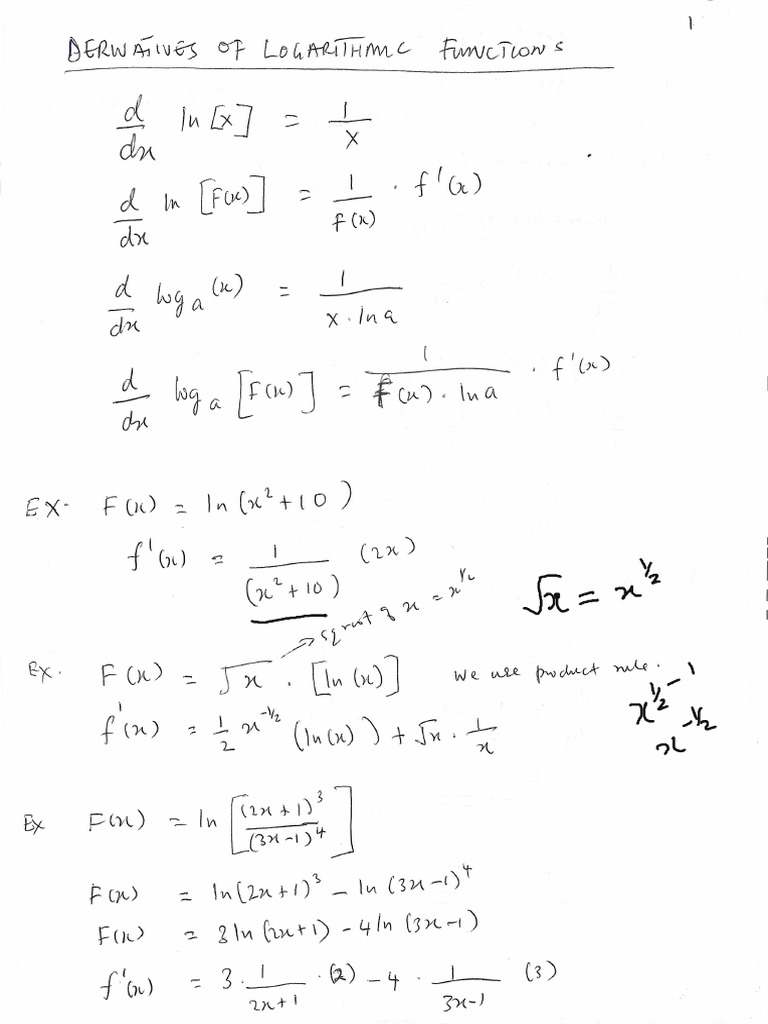 1
DERIVATIVES OF LOGARITHMIC FUNCTIONS
d/dx ln [x] = 1/x
d/dx ln [F(x)] = 1/f(x) · f'(x)
d/dx log_a (x) = 1/(x · ln a)
d/dx log_a [F(x)] = 1/(f(x) · ln a) · f'(x)
EX- F(x) = ln (x² + 10)
f'(x) = 1/(x² + 10) (2x)
√x = x^½
sqroot of x = x^½
Ex. F(x) = √x · [ln (x)] we use product rule.
f'(x) = ½ x^-½ (ln(x)) + √x · 1/x
x^½ - 1
x^-½
Ex F(x) = ln [(2x+1)³/(3x-1)⁴]
F(x) = ln (2x+1)³ - ln (3x-1)⁴
F(x) = 3 ln (2x+1) - 4 ln (3x-1)
f'(x) = 3 · 1/(2x+1) · (2) - 4 · 1/(3x-1) (3)